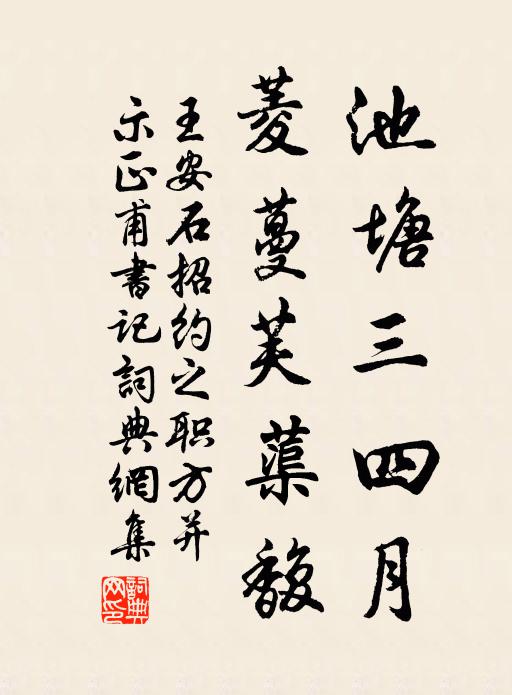 池塘三四月
菱蔓芙蕖馥
王安石招约之职方并
示正甫書记詞典網集
詞典网印